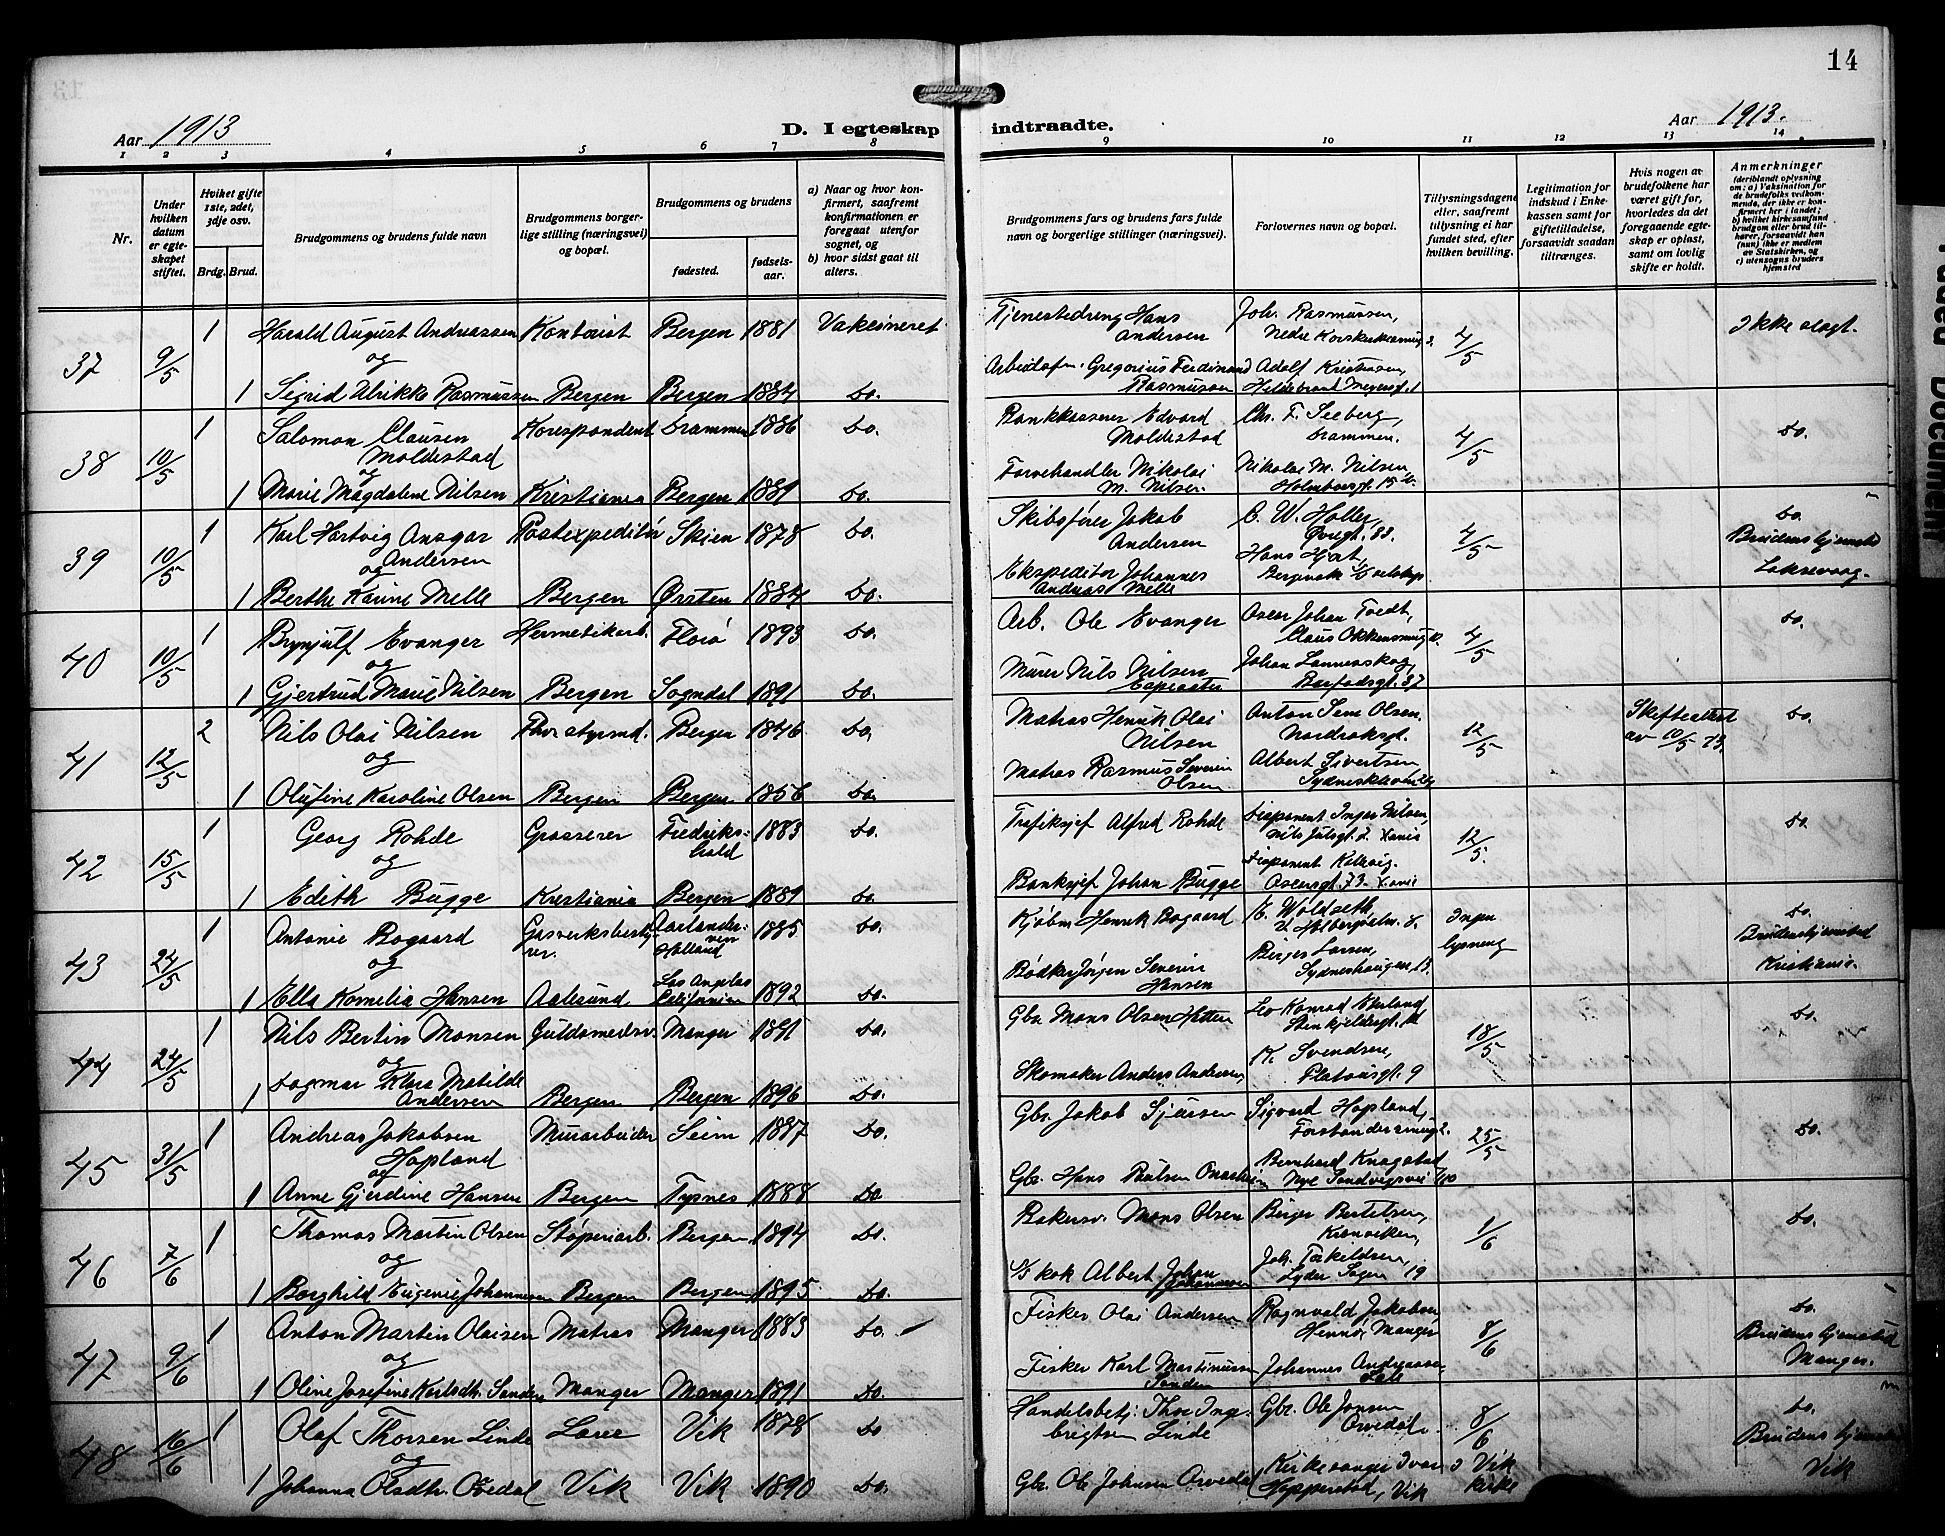 14
Aar 1913
D. I egteskap indtraadte.
Aar 1913.
1 2 3 4 5 6 7 8 9 10 11 12 13 14
Nr.
Under hvilken datum er egteskapet stiftet.
Hviket gifte 1ste, 2det, 3dje osv.
Brdg. Brud.
Brudgommens og brudens fulde navn
Brudgommens borgerlige stilling (næringsvei) og bopæl.
Brudgommens og brudens
fødested.
fødselsaar.
a) Naar og hvor konfirmert, saafremt konfirmationen er foregaat utenfor sognet, og
b) hvor sidst gaat til alters.
Brudgommens fars og brudens fars fulde navn og borgerlige stillinger (næringsvei).
Forlovernes navn og bopæl.
Tillysningsdagene eller, saafremt tillysning ei har fundet sted, efter hvilken bevilling.
Legitimation for indskud i Enkekassen samt for giftetilladelse, forsaavidt saadan tiltrænges.
Hvis nogen av brudefolkene har været gift før, hvorledes da det foregaaende egteskap er opløst, samt om lovlig skifte er holdt.
Anmerkninger
(deriblandt oplysning om: a) Vaksination for de brudefolks vedkommende, der ikke er konfirmert her i landet; b) hvilket kirkesamfund brudgom eller brud tilhører, forsaavidt han (hun) ikke er medlem av Statskirken, og c) utensogns bruders hjemsted
37 9/5 1 Harald August Andreassen Kontorist Bergen 1881 Vaksineret Tjenestedreng Hans Andersen Joh. Rasmussen, Nedre Korskirkesmug 2. 4/5 Ikke slegt.
og
1 Sigrid Ulrikke Rasmussen Bergen Bergen 1884 Do. Gregorius Ferdinand Rasmussen Adolf Kristiansen, Hildebrant Meyersgt. 1
38 10/5 1 Salomon Clausen Moldestad Korespondent Drammen 1886 Do. Bankkasserer Edvard Moldestad Chr. F. Seeberg, Drammen. 4/5 Do.
og
1 Marie Magdalene Nilsen Kristiania Bergen 1889 Do. Farvehandler Nikolai M. Nilsen. Nikolai M. Nilsen, Holmbergt. 15
39 10/5 1 Karl Hartvig Ansgar Andersen Postexpeditør Skien 1878 Do. Skibsfører Jakob Andersen C. W. Holler, Øvregt. 83. 4/5 Do.
og
1 Berthe Karine Melle Bergen Ørsten 1884 Do. Ekspeditør Johannes Andreas Melle Hans Hjort, Brudens hjemsted Laksevaag.
40 10/5 1 Brynjulf Evanger Hermetikarb. Florø 1893 Do. Arb. Ole Evanger Oscar Johan Tvedt, Claus Okkensmug 4/5 Do.
og
1 Gjertrud Marie Nilsen Bergen Sogndal 1891 Do. Murer Nils Nilsen Johan
41 12/5 2 Nils Olai Nilsen Fhv. styrmd. Bergen 1846 Do. Matros Henrik Olai Nilsen Anton Sene Olsen. Nordraaksgt. 12/5 Skifteattest av 10/5 13. Do.
og
1 Olufine Karoline Olsen Bergen Bergen 1856 Do. Matros Rasmus Severin Olsen Albert Sivertsen
42 15/5 1 Georg Rohde Grosserer Fredrikshald 1883 Do. Trafikchef Alfred Rohde Disponent Inger Nilsen, Nils Julsgt. 2. Xania 12/5. Do.
og
1 Edith Bugge Kristiania Bergen 1889 Do. Bankchef Johan Bugge Disponent Kolvig. Oscarsgt. 73. Xania
43 24/5 1 Antonie Bogaard Gasverksbestyrer. Aarlanderveen Holland 1885 Do. Kjøbm. Henrik Bogaard E. Woldseth Ingen lysning Do.
og
1 Ella Kornelia Hansen Aalesund Los Angelos Californien 1892 Do. Bødker Jørgen Severin Hansen Birger Larsen, Sydneshaugen 13. Brudens hjemsted Kristiania.
44 24/5 1 Nils Bertin Monsen Guldsmedsv. Manger 1891 Do. Gbr. Mons Olsen Hatten Leo Konrad 18/5 Do.
og
1 Dagmar Klara Matilde Andersen Bergen Bergen 1896 Do. Skomaker Anders Andersen K. Svendsen, Platousgt. 9
45 31/5 1 Andreas Jakobsen Hopland Murarbeider Seim 1887 Do. Gbr. Jakob Sjursen Sigvard Hopland, Forstandersmug 2. 25/5 Do.
og
1 Anne Gjerdine Hansen Bergen Tysnes 1888 Do Gbr. Hans Bernhard Knagstad Nye Sandvigsvei
46 7/6 1 Thomas Martin Olsen Støperiarb. Bergen 1894 Do. Bakersv. Mons Olsen Birger Bertelsen, Kronviken, 1/6 Do.
og
1 Borghild Eugenie Johannesen Bergen Bergen 1895 Do. S/S kok Albert Johan Johannesen Joh. Torkildsen, Lyder Sagen 19
47 9/6 1 Anton Martin Olaisen Matros Manger 1883 Do. Fisker Olai Andersen Ragnvald Jakobsen, Hennø, Manger 8/6 Do.
og
1 Oline Josefine Karlsdtr. Sanden Manger Manger 1891 Do. Fisker Karl Martinussen Sanden Johannes Brudens hjemsted Manger.
48 16/6 1 Olaf Thorsen Linde Lærer Vik 1878 Do Handelsbetj. Thor Ingebrigtsen Linde Gbr. Ole Jonsen Orvedal 8/6 Do.
og
1 Johanna Olsdtr. Orvedal Vik Vik 1890 Do. Gbr. Ole Johnsen Orvedal Kirkesanger Ivar Hopperstad, Vik I Vik kirke Brudens hjemsted Vik